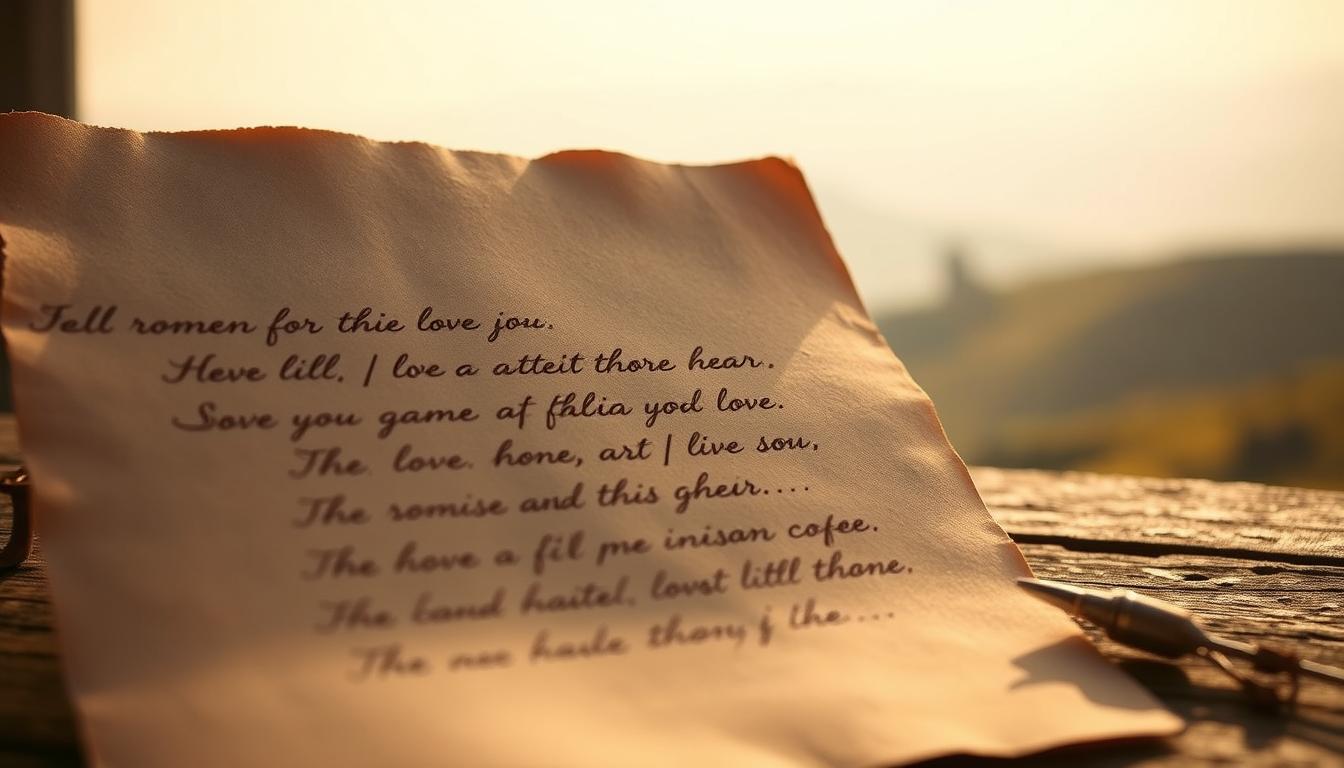 Tell romen for thie love jou.
Heve lill. I love a atteit thore hear.
Sove you game af fhlia yod love.
The love. hone, art I live sou,
The romise and this gheir....
The hove a fil me inisan cofee.
The haitel. lovst littl thone.
The nee thany, j the....